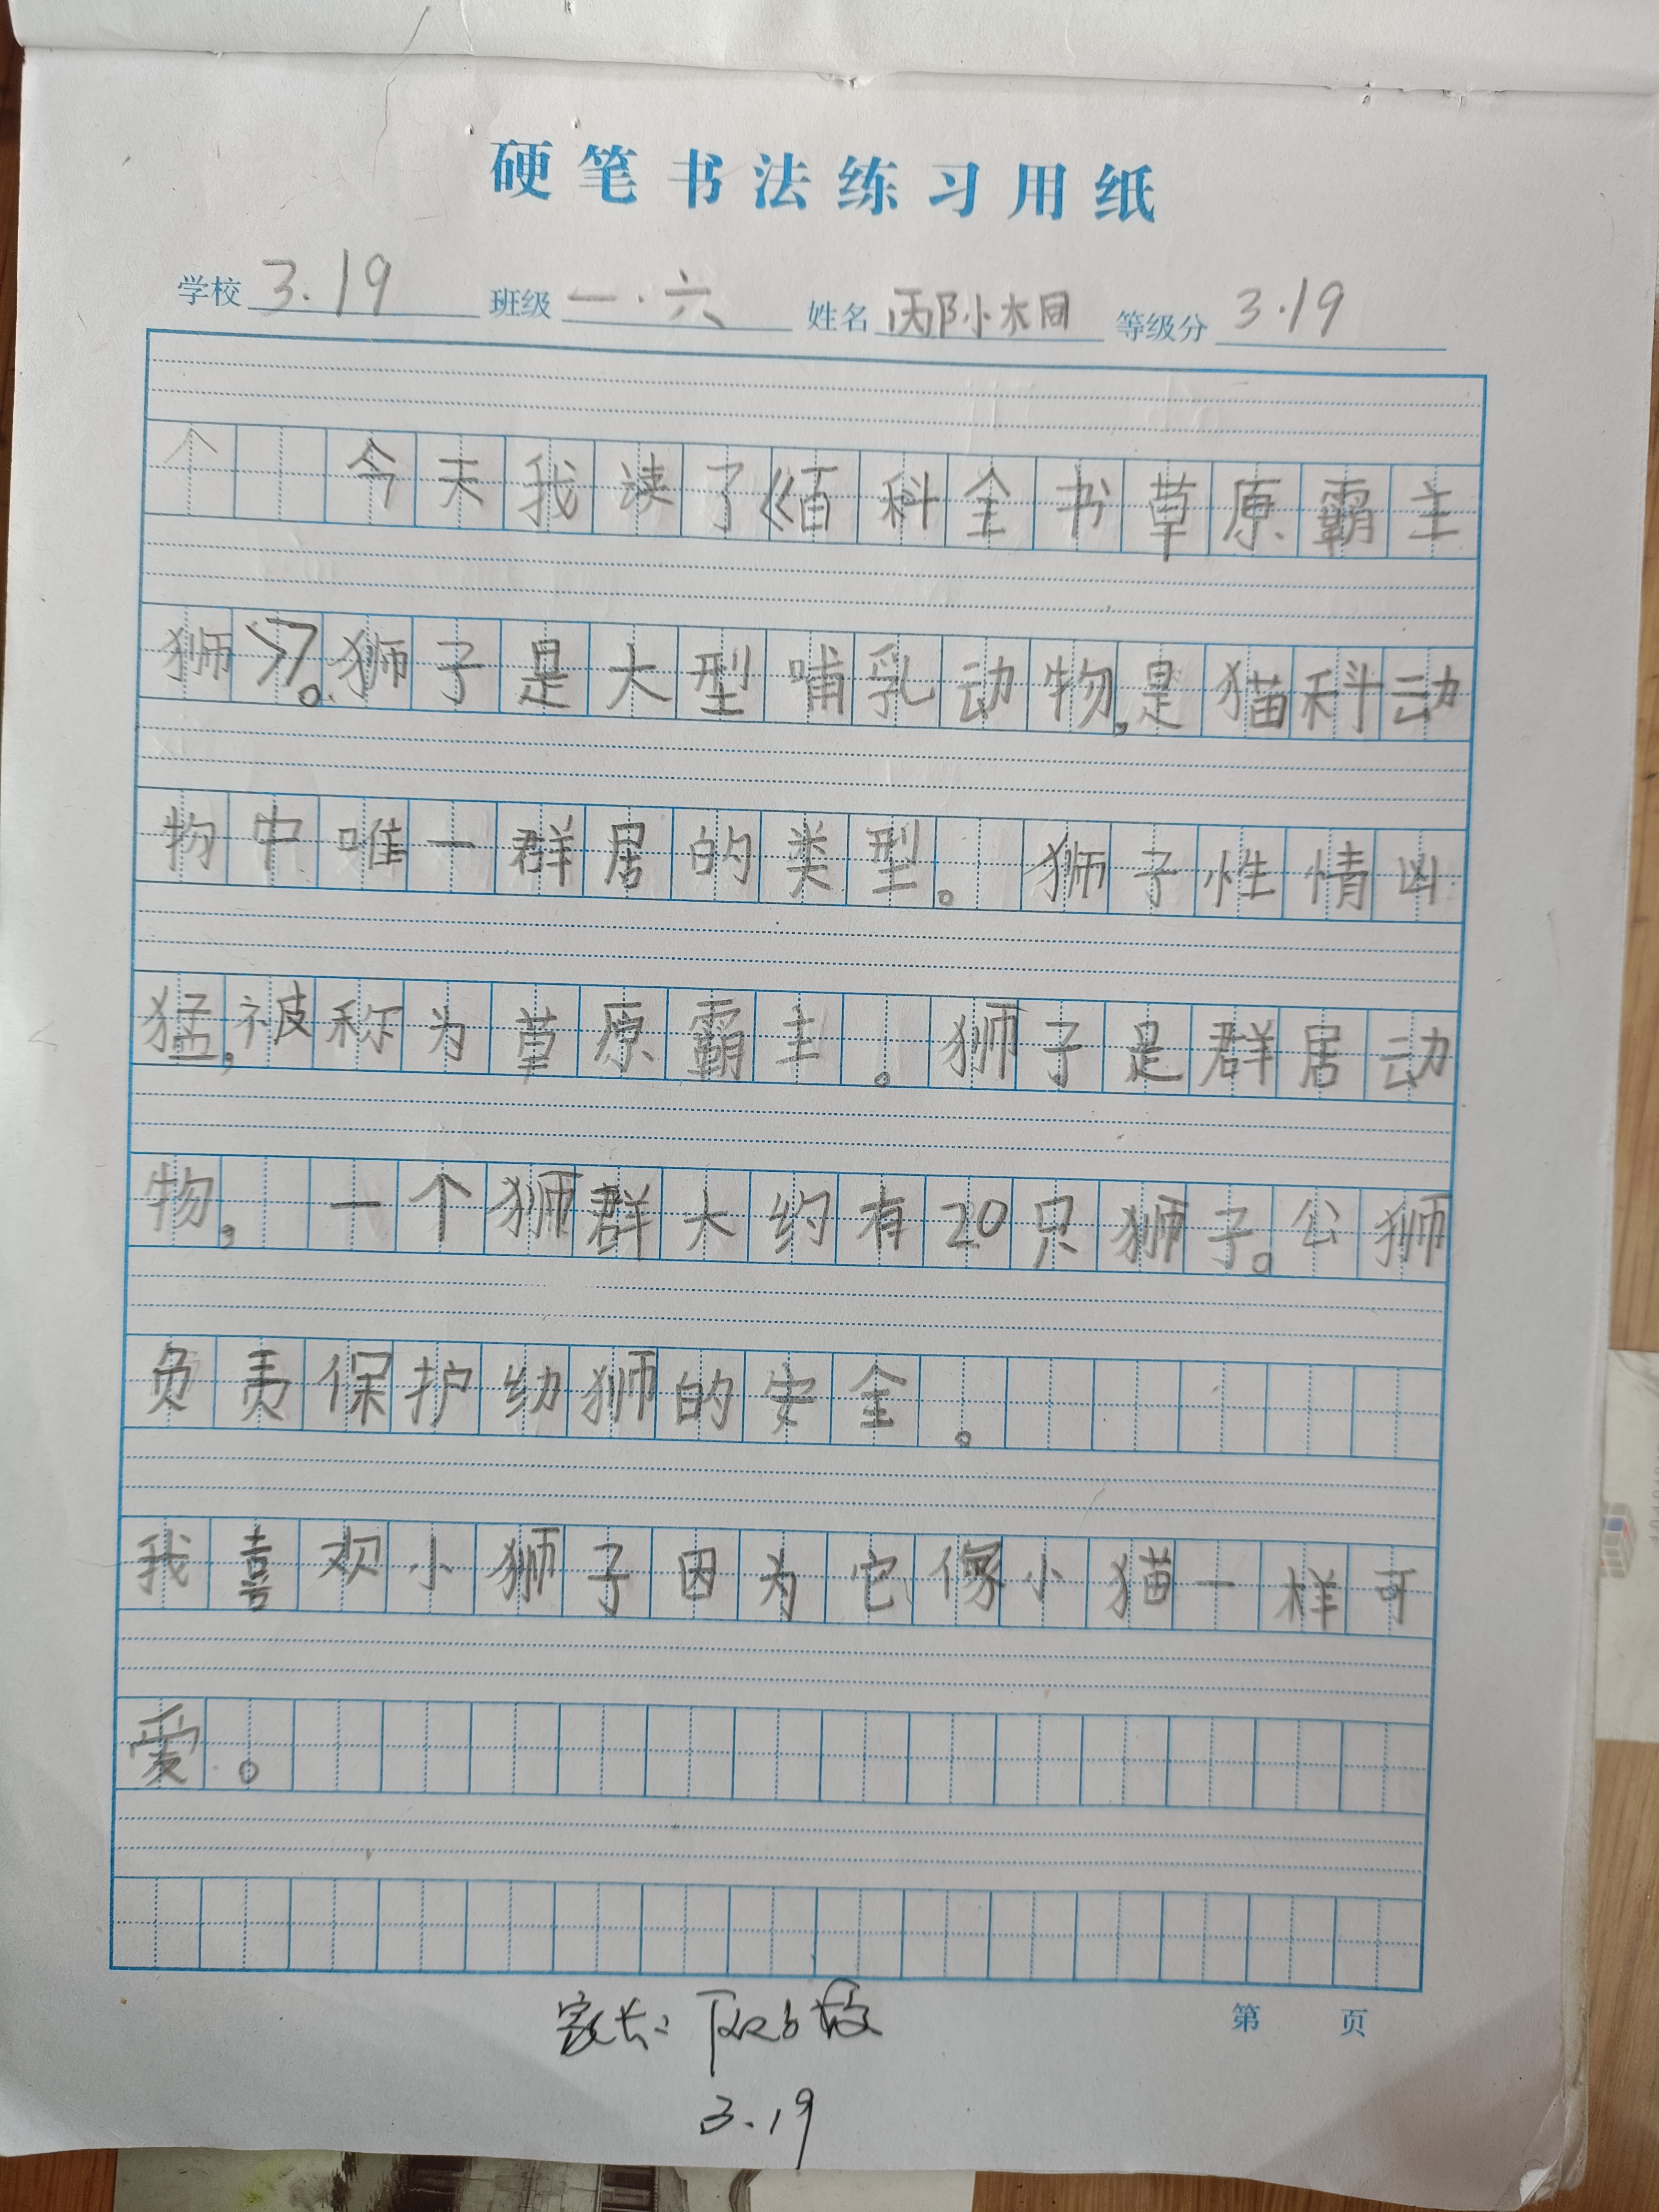 硬笔书法练习用纸
学校 3.19 班级 一.六 姓名 邴小木同 等级分 3.19
今天我读了《百科全书草原霸主
狮》。狮子是大型哺乳动物,是猫科动
物中唯一群居的类型。狮子性情凶
猛,被称为草原霸主。狮子是群居动
物,一个狮群大约有20只狮子。公狮
负责保护幼狮的安全。
我喜欢小狮子因为它像小猫一样可
爱。
第 页
家长:
3.19